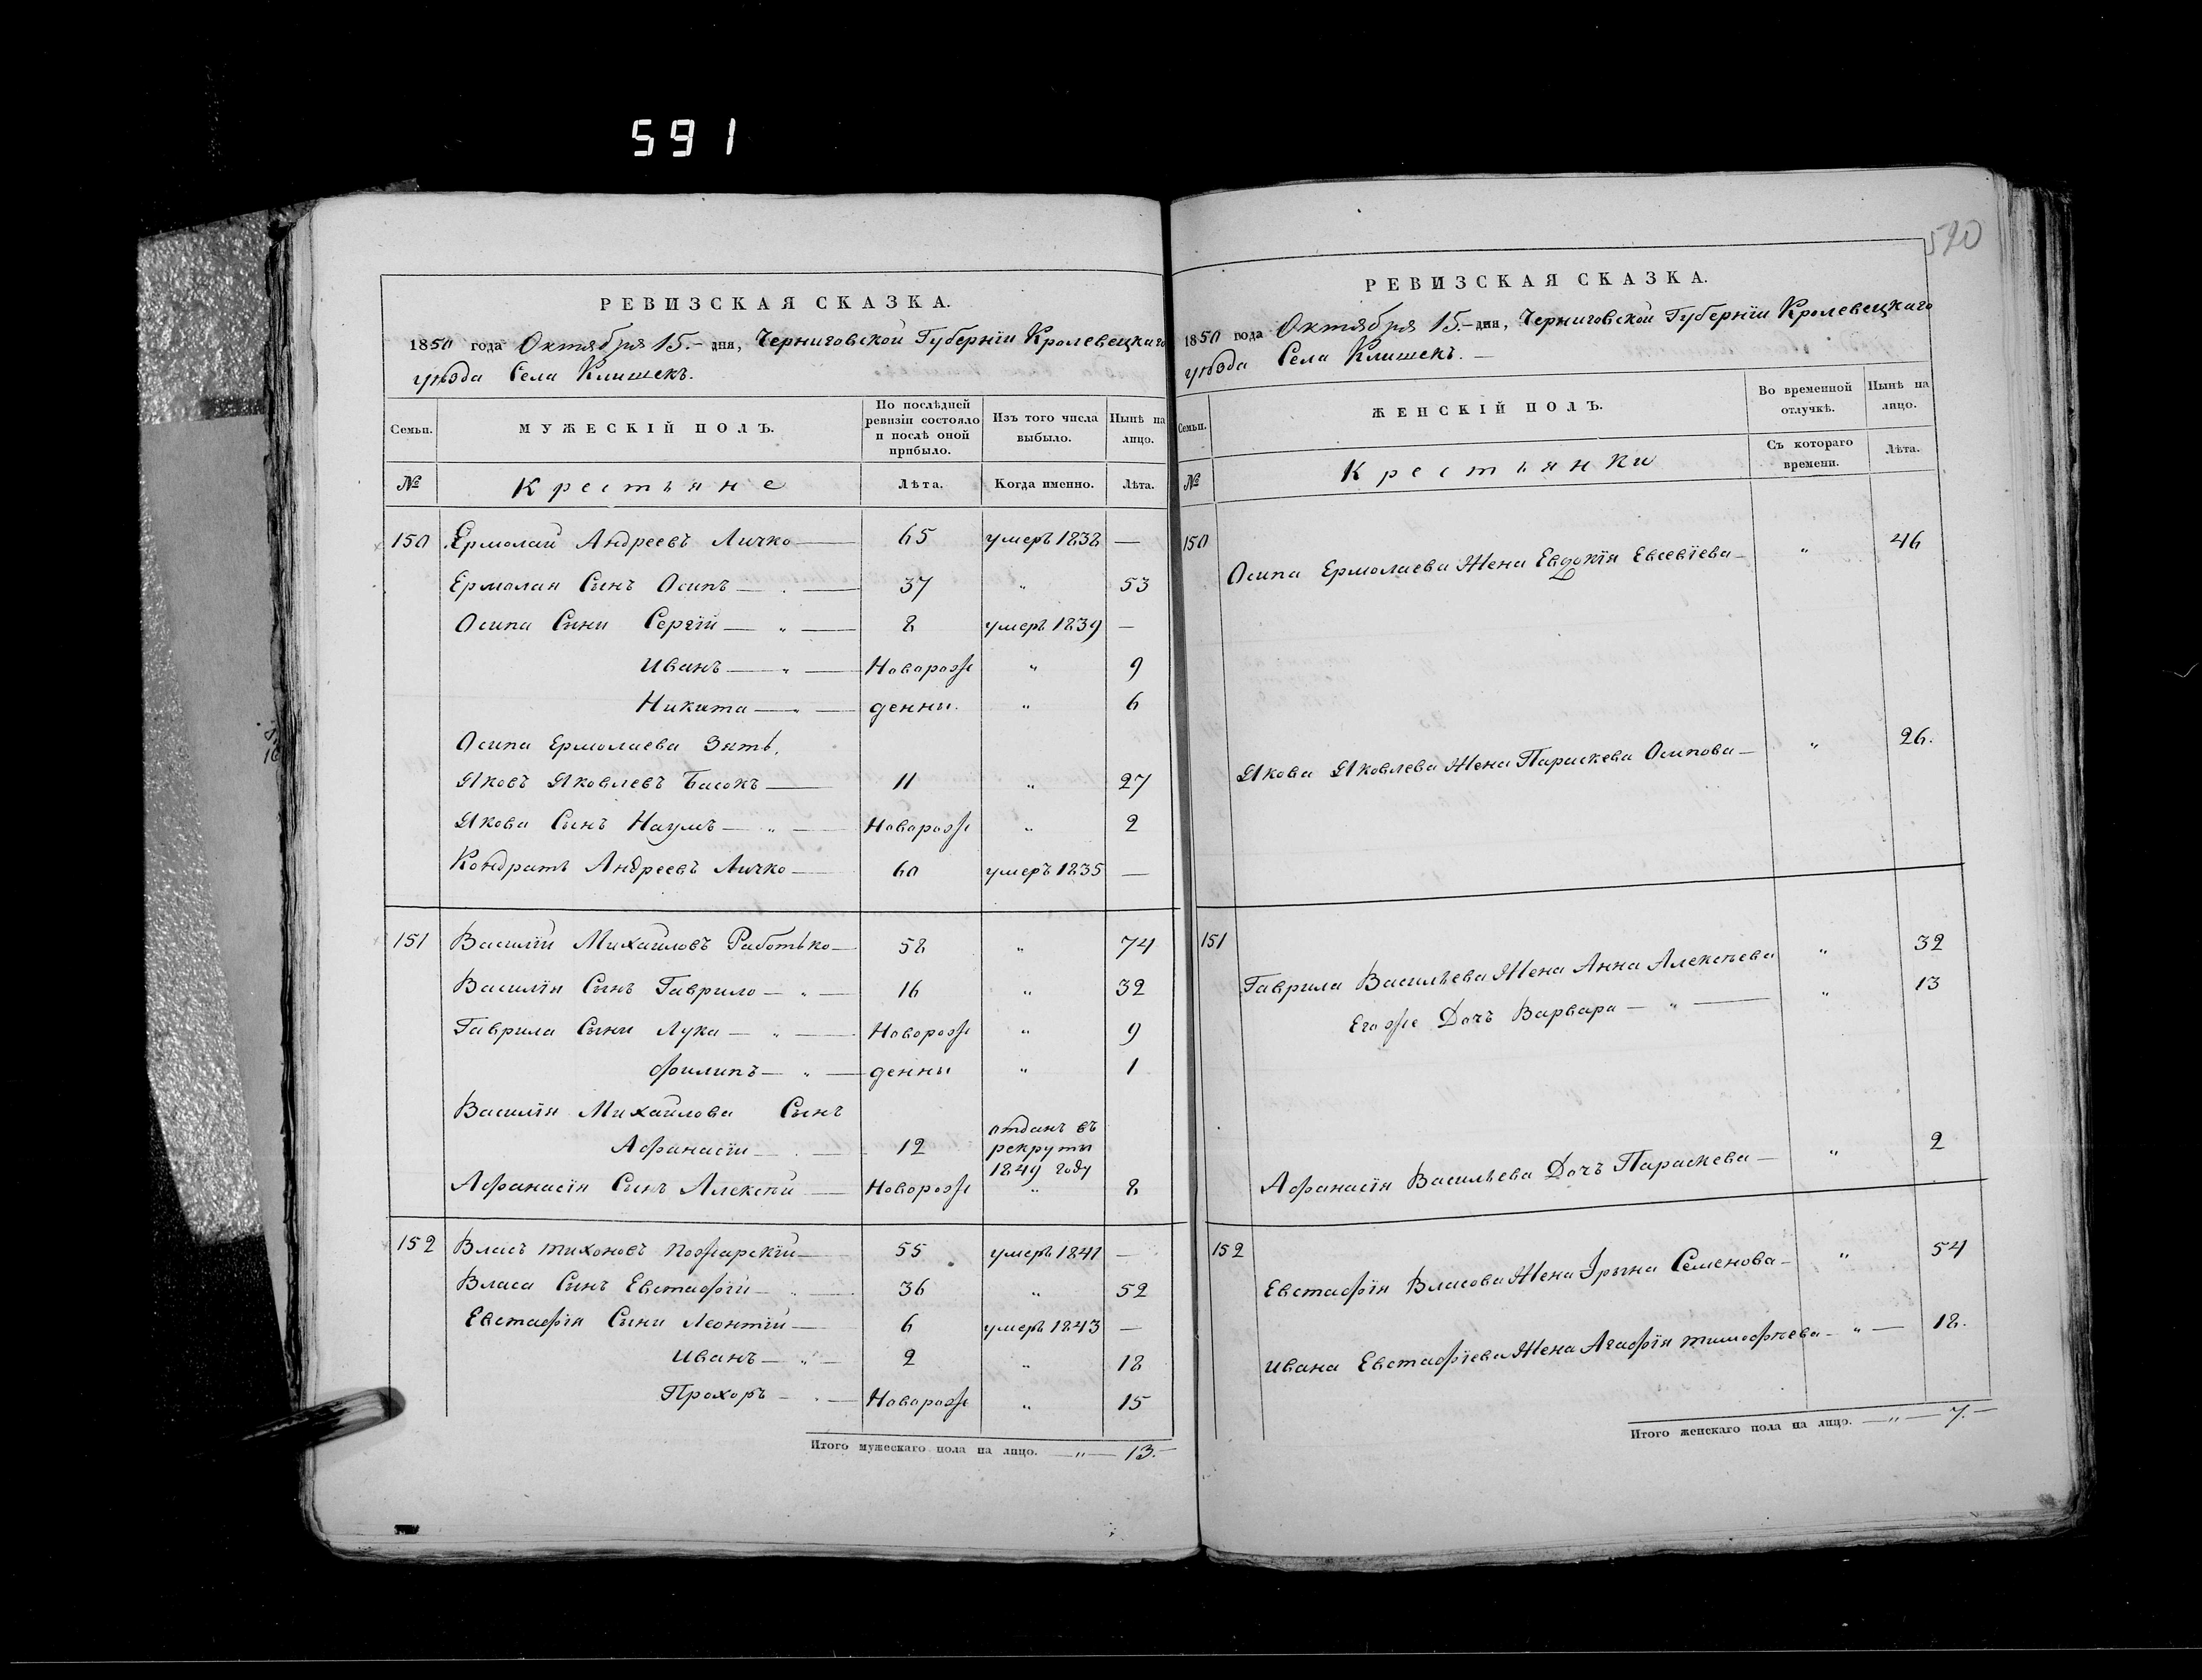 591
590
РЕВИЗСКАЯ СКАЗКА.
1850 года Октября 15.- дня, Черниговской Губерніи Кролевецкаго
уѣзда Села Клишекъ.
Семьи. МУЖЕСКІЙ ПОЛЪ. По послѣдней ревизіи состояло и послѣ оной прибыло. Изъ того числа выбыло. Нынѣ на лицо.
№ Крестьяне Лѣта. Когда именно. Лѣта.
150 Ермолай Андреевъ Личко — 65 умеръ 1838 —
Ермолая Сынъ Осипъ — 37 " 53
Осипа Сыни Сергій — " — 8 умеръ 1839 —
Иванъ — " — Новорож " 9
Никита — " — денны. " 6
Осипа Ермолаева Зять,
Яковъ Яковлевъ Басокъ — 11 " 27
Якова Сынъ Наумъ — " — Новорож " 2
Кондратъ Андреевъ Личко — 60 умеръ 1835 —
151 Василій Михайловъ Работько — 58 " 74
Василія Сынъ Гаврило — " — 16 " 32
Гаврила Сыни Лука — " — Новорож " 9
Филипъ — " — денны " 1
Василія Михайлова Сынъ
Афанасій — 12 отданъ въ рекруты 1849 году
Афанасія Сынъ Алексѣй — Новорож " 8
152 Власъ Тихоновъ Пожарскій — 55 умеръ 1841 —
Власа Сынъ Евстафій — 36 " 52
Евстафія Сыни Леонтій — 6 умеръ 1843 —
Иванъ — " — 2 " 18
Прохоръ — " — Новорож " 15
Итого мужескаго пола на лицо. — " — 13.—
РЕВИЗСКАЯ СКАЗКА.
1850 года Октября 15.- дня, Черниговской Губерніи Кролевецкаго
уѣзда Села Клишекъ. —
Семьи. ЖЕНСКІЙ ПОЛЪ. Во временной отлучкѣ. Нынѣ на лицо.
№ Крестьянки Съ котораго времени. Лѣта.
150 Осипа Ермолаева Жена Евдокія Евсевіева — " 46
Якова Яковлева Жена Параскева Осипова — " 26.
151 Гаврила Васильева Жена Анна Алексѣева " 32
Егоже Дочъ Варвара — " — " 13
Афанасія Васильева Дочъ Параскева — " 2
152 Евстафія Власова Жена Ірына Семенова — " 54
Ивана Евстафіева Жена Агафія Тимофѣева — " — 18.
Итого женскаго пола на лицо. — " — 7.—